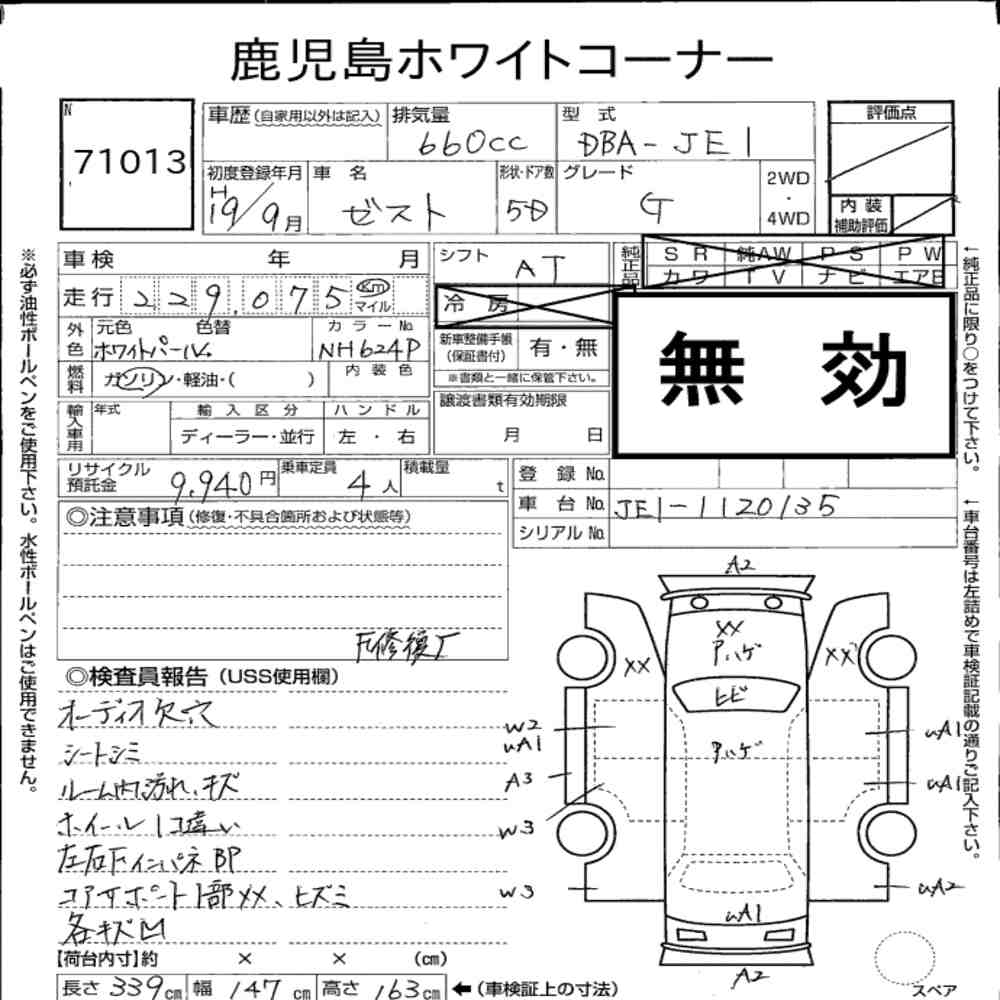 鹿児島ホワイトコーナー
N 71013
車歴(自家用以外は記入) 排気量 660cc 型式 DBA-JE1 評価点
初度登録年月 H19/9月 車名 ゼスト 形状・ドア数 5D グレード G 2WD・4WD
内装補助評価
車検 年 月 シフト AT 純正品 SR 純AW PS PW
カワ TV ナビ エアB
走行 229,075 km マイル 冷房
外色 元色 色替 カラーNo. 新車整備手帳(保証書付) 有・無
ホワイトパール NH624P
無効
燃料 ガソリン・軽油・( ) 内装色 ※書類と一緒に保管下さい。
輸入車用 年式 輸入区分 ハンドル 譲渡書類有効期限
ディーラー・並行 左・右 月 日
リサイクル預託金 9,940円 乗車定員 4人 積載量 t 登録No.
車台No. JE1-1120135
シリアルNo.
◎注意事項(修復・不具合箇所および状態等)
F修復歴
◎検査員報告(USS使用欄)
オーディオ欠穴
シートシミ
ルーム内汚れ、キズ
ホイール1コ違い
左右Fインパネ BP
コアサポート1部XX、ヒズミ
各キズ凹
【荷台内寸】約 × × (cm)
長さ 339cm 幅 147cm 高さ 163cm ←(車検証上の寸法)
※必ず油性ボールペンをご使用下さい。水性ボールペンはご使用できません。
←純正品に限り○をつけて下さい。
←車台番号は左詰めで車検証記載の通りご記入下さい。
A2
XX
アハゲ
XX
XX
ヒビ
W2
uA1
アハゲ
uA1
A3
uA1
W3
W3
uA2
uA1
A2
スペア